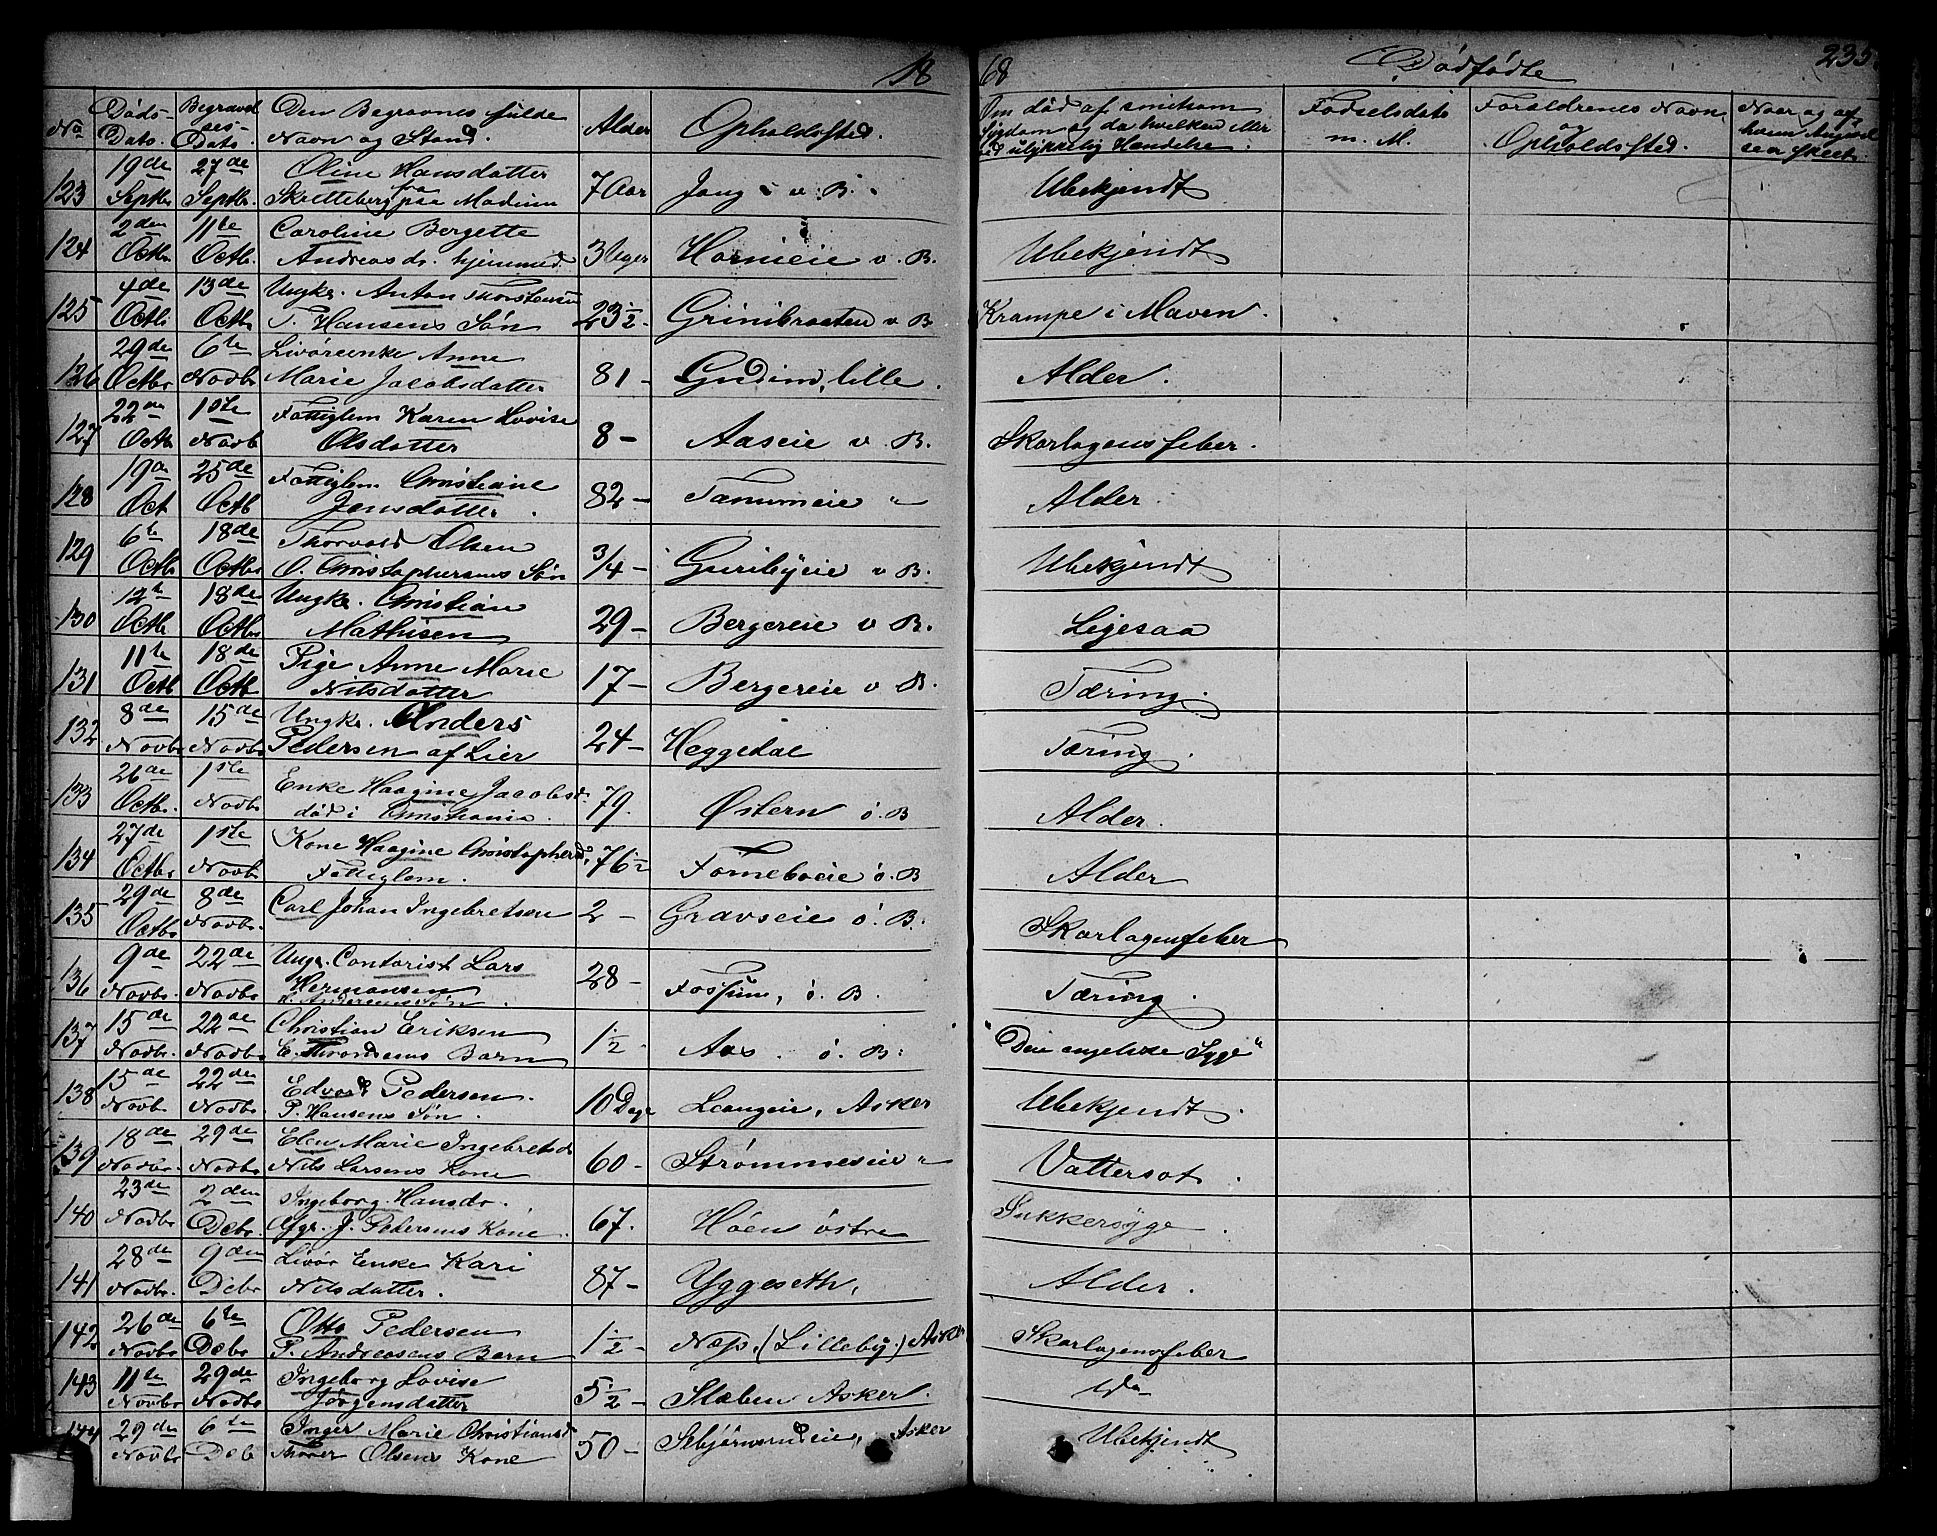 18 68 Dødfødte 235
No Døds-Dato. Begravelses-Dato. Den Begravnes fulde Navn og Stand. Alder Opholdssted. Om død af smitsom Sygdom og da hvilken eller ved ulykkelig Hændelse. Fødselsdato m. M. Forældrenes Navn og Opholdssted. Naar og af hvem
123 19de Septbr 27de Septbr. Oline Hansdatter
Skotteberg fra paa Modum 7 Aar Jong v. B. Ubekjendt
124 2den Octbr. 11te Octb. Caroline Bergette
Andreasdr. hjemmed. 3 Uger Hornieie v. B. Ubekjendt
125 4de Octb 13de Octbr Ungkr. Anton Thorstensen
T. Hansens Søn 23½ - Grinibraaten v B Krampe i Maven.
126 29de Octbr 6te Novbr Livøreenke Anne
Marie Jacobsdatter 81 - Gudim, lille. Alder.
127 22de Octb 1ste Novb Fattiglem Karen Lovise
Olsdatter 8 - Aaseie v. B. Skarlagensfeber.
128 19de Oct 25de Octb Fattiglem Christiane
Jensdatter. 82 - Tanumeie " Alder.
129 6te Octb 18de Octbr Thorvald Olsen
O. Christophersens Søn ¾ - Guribyeie v B. Ubekjendt
130 12te Octb 18de Octbr Ungkr. Christian
Mathisen 29 - Bergereie v B. Ligesaa
131 11te Octb 18de Octb Pige Anne Marie
Nilsdatter 17 - Bergereie v B. Tæring.
132 8de Novbr 15de Novbr Ungkr. Anders
Pedersen af Lier 24 - Heggedal Tæring.
133 26de Octbr. 1ste Novbr Enke Haagine Jacobsd.
død i Christiania. 79. Østern ö. B Alder.
134 27de Octbr 1ste Novbr Kone Haagine Christophersd.
Fattiglem. 76½ Forneboeie ö. B Alder
135 29de Octbr 8de Novbr. Carl Johan Ingebretsen 2 - Gravseie ö. B. Skarlagenfeber
136 9de Novbr. 22de Novbr Ungk. Contorist Lars
Hermansen
H. Andersens Søn. 28 - Fossum, ö. B. Tæring.
137 15de Novbr. 22de Novbr Christian Eriksen
E. Throndsens Barn 1½ Aas. ö. B. "Den engelske Syge"
138 15de Novb. 22de Novbr Edvard Pedersen.
P. Hansens Søn. 10 Dage Leangeie, Asker Ubekjendt.
139 18de Novbr. 29de Novbr Elen Marie Ingebretsd
Nils Larsens Kone 60 - Strømmeseie " Vattersot.
140 23de Novbr 2den Debr. Ingeborg Hansdr.
Afgr. J. Pedersens Kone. 67. Höen östre Sukkersyge.
141 28de Novbr. 9den Debr Livør Enke Kari
Nilsdatter. 87 - Yggeseth, Alder.
142 26de Novbr 6te Debr Otto Pedersen
P. Andreasens Barn 1½ - Næs, (Lilleby) Asker Skarlagensfeber
143 11te Novbr 29de Novbr Ingeborg Lovise
Jörgensdatter 5½ - Slæben Asker.
144 29de Novbr 6te Deb Inger Marie Christiansd
Thorer Olsens Kone 50 - Sebjørnrudeie, Asker Ubekjendt